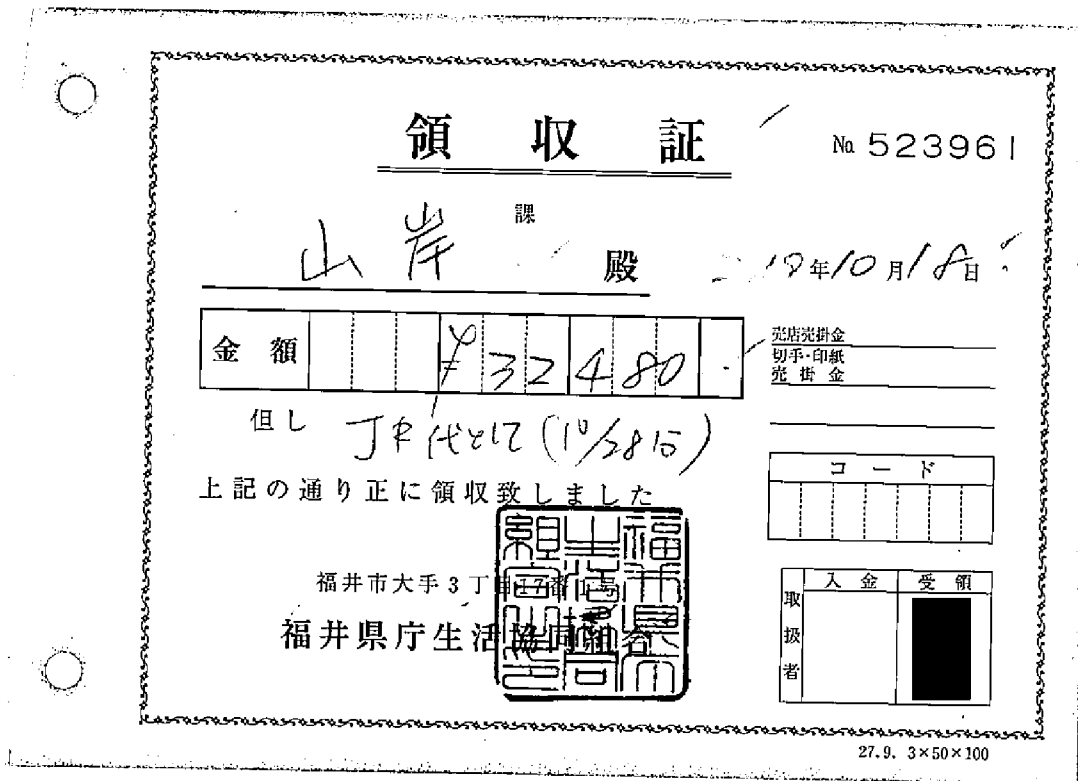 領収証
No. 523961
課
山岸 殿
年10月18日
金額 ¥32480
売店売掛金
切手・印紙
売掛金
但し JR代として (10/28分)
上記の通り正に領収致しました
コード
福井市大手3丁目17番1号
福井県庁生活協同組合
入金 受領
取扱者
27.9. 3×50×100